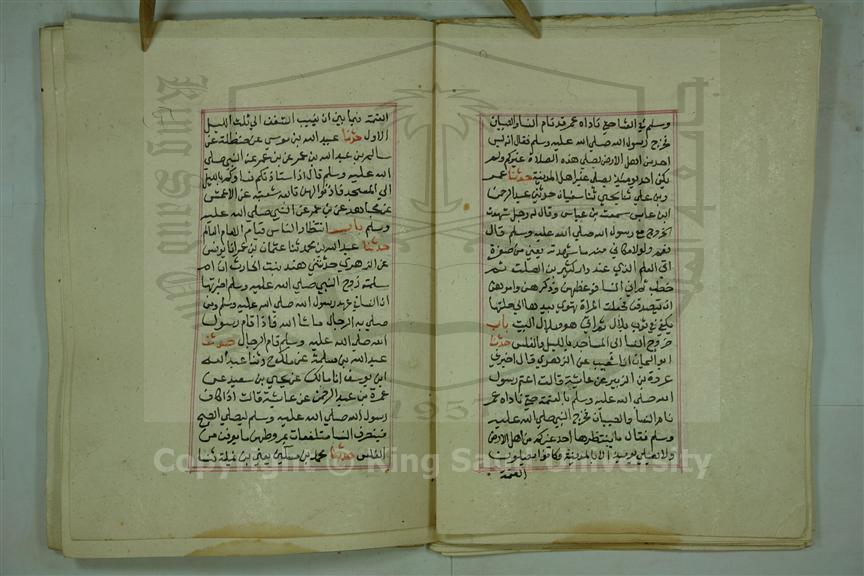 وسلم في العشا حتي ناداه عمر قد نام النسا والصبيان
فخرج رسول الله صلي الله عليه وسلم فقال انه ليس
احد من اهل الارض يصلي هذه الصلاة غيركم ولم
يكن احد يوميذ يصلي غير اهل المدينة حدثنا عمر
وبن علي ثنا يحي ثنا سفيان حدثني عبد الرحمن
ابن عابس سمعت بن عباس وقال له رجل شهدت
الخروج مع رسول الله صلي الله عليه وسلم قال
نعم ولولا مكاني منه ما شهدته يعني من صغره
اتي العلم الذي عند دار كثير بن الصلت ثم
خطب ثم اتي النسا فوعظهن وذكرهن وامرهن
ان يتصدقن فجعلت المراة تهوي بيدها الي حلقها
تلقي في ثوب بلال ثم اتي هو وبلال البيت باب
خروج النسا الي المساجد بالليل والغلس حدثنا
ابو اليمان انا شعيب عن الزهري قال اخبرني
عروة بن الزبير عن عايشة قالت اعتم رسول
الله صلي الله عليه وسلم بالعتمة حتي ناداه عمر
نام النسا والصبيان فخرج النبي صلي الله عليه
وسلم فقال ما ينتظرها احد غيركم من اهل الارض
ولا يصلي يوميذ الا بالمدينة وكانوا يصلون
العتمة
العتمة فيما بين ان يغيب الشفق الي ثلث الليل
الاول حدثنا عبيد الله بن موسي عن حنظلة عن
سالم بن عبد الله بن عمر عن بن عمر عن النبي صلي
الله عليه وسلم قال اذا استاذنكم نساوكم بالليل
الي المسجد فاذنوا لهن تابعه شعبة عن الاعمش
عن مجاهد عن بن عمر عن النبي صلي الله عليه
وسلم باب انتظار الناس قيام الامام
حدثنا عبد الله بن محمد ثنا عثمان بن عمر انا يونس
عن الزهري حدثتني هند بنت الحارث ان ام
سلمة زوج النبي صلي الله عليه وسلم اخبرتها
ان النسا في عهد رسول الله صلي الله عليه وسلم ومن
صلي به الرجال ما شا الله فاذا قام رسول
الله صلي الله عليه وسلم قام الرجال حدثنا
عبد الله بن مسلمة عن مالك ح وثنا عبد الله
ابن يوسف انا مالك عن يحي بن سعيد عن
عمرة بن عبد الرحمن عن عايشة قالت ان كان
رسول الله صلي الله عليه وسلم ليصلي الصبح
فينصرف النسا متلفعات بمروطهن ما يعرفن من
الغلس حدثنا محمد بن مسكين يعني بن نميلة ثنا
Copyright © King Saud University
King Saud University
1957